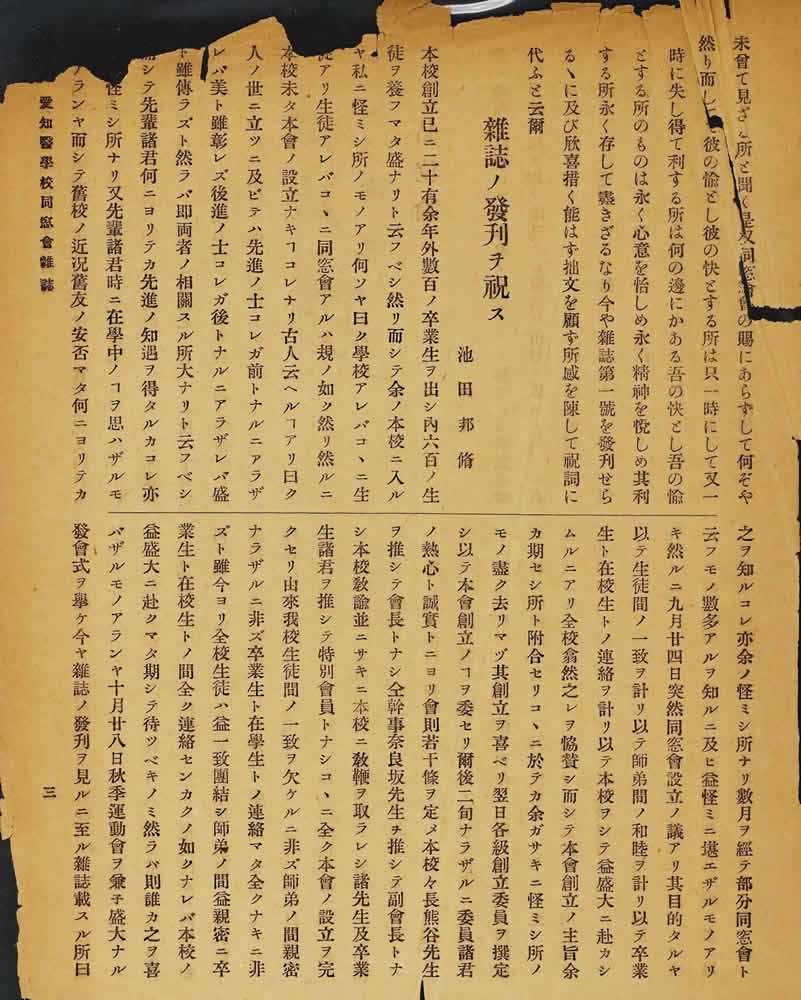 未曾て見ざる所と聞く是又同窓會の賜にあらずして何ぞや
然り而して彼の愉とし彼の快とする所は只一時にして又一
時に失し得て利する所は何の邊にかある吾の快とし吾の愉
とする所のものは永く心意を怡しめ永く精神を悅しめ其利
する所永く存して盡きざるなり今や雜誌第一號を發刋せら
るヽに及び欣喜措く能はず拙文を願ず所感を陳して祝詞に
代ふと云爾
雜誌ノ發刋ヲ祝ス
池田邦脩
本校創立已ニ二十有余年外數百ノ卒業生ヲ出シ內六百ノ生
徒ヲ養フマタ盛ナリト云フベシ然リ而シテ余ノ本校ニ入ル
ヤ私ニ怪ミシ所ノモノアリ何ソヤ曰ク學校アレバコヽニ生
徒アリ生徒アレバコヽニ同窓會アルハ規ノ如ク然リ然ルニ
本校未タ本會ノ設立ナキヿコレナリ古人云ヘルヿアリ曰ク
人ノ世ニ立ツニ及ビテハ先進ノ士コレガ前トナルニアラザ
レバ美ト雖彰レズ後進ノ士コレガ後トナルニアラザレバ盛
ト雖傳ラズト然ラバ即兩者ノ相關スル所大ナリト云フベシ
シテ先輩諸君何ニヨリテカ先進ノ知遇ヲ得タルカコレ亦
怪ミシ所ナリ又先輩諸君時ニ在學中ノヿヲ思ハザルモ
アランヤ而シテ舊校ノ近況舊友ノ安否マタ何ニヨリテカ
之ヲ知ルコレ亦余ノ怪ミシ所ナリ數月ヲ經テ部分同窓會ト
云フモノ數多アルヲ知ルニ及ヒ益怪ミニ堪エザルモノアリ
キ然ルニ九月廿四日突然同窓會設立ノ議アリ其目的タルヤ
以テ生徒間ノ一致ヲ計リ以テ師弟間ノ和睦ヲ計リ以テ卒業
生ト在校生トノ連絡ヲ計リ以テ本校ヲシテ益盛大ニ赴カシ
ムルニアリ全校翕然之レヲ恊賛シ而シテ本會創立ノ主旨余
カ期セシ所ト附合セリコヽニ於テカ余ガサキニ怪ミシ所ノ
モノ盡ク去リマヅ其創立ヲ喜ベリ翌日各級創立委員ヲ撰定
シ以テ本會創立ノヿヲ委セリ爾後二旬ナラザルニ委員諸君
ノ熱心ト誠實トニヨリ會則若干條ヲ定メ本校々長熊谷先生
ヲ推シテ會長トナシ仝幹事奈良坂先生ヲ推シテ副會長トナ
シ本校敎諭並ニサキニ本校ニ敎鞭ヲ取ラレシ諸先生及卒業
生諸君ヲ推シテ特別會員トナシコヽニ全ク本會ノ設立ヲ完
クセリ由來我校生徒間ノ一致ヲ欠ケルニ非ズ師弟ノ間親密
ナラザルニ非ズ卒業生ト在學生トノ連絡マタ全クナキニ非
ズト雖今ヨリ全校生徒ハ益一致團結シ師弟ノ間益親密ニ卒
業生ト在校生トノ間全ク連絡センカクノ如クナレバ本校ノ
益盛大ニ赴クマタ期シテ待ツベキノミ然ラバ則誰カ之ヲ喜
バザルモノアランヤ十月廿八日秋季運動會ヲ兼子盛大ナル
發會式ヲ擧ケ今ヤ雜誌ノ發刋ヲ見ルニ至ル雜誌載スル所曰
愛知醫學校同窓會雜誌
三